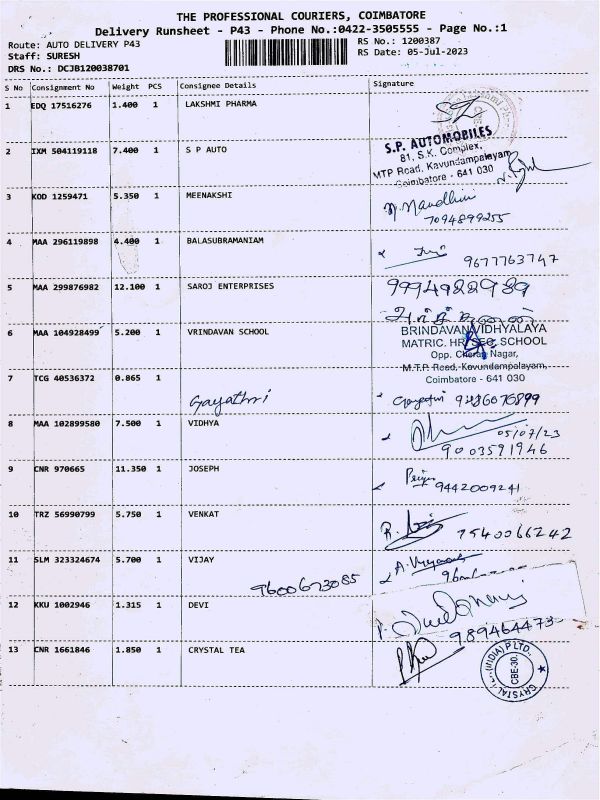 THE PROFESSIONAL COURIERS, COIMBATORE
Delivery Runsheet - P43 - Phone No.:0422-3505555 - Page No.:1
Route: AUTO DELIVERY P43 RS No.: 1200387
Staff: SURESH RS Date: 05-Jul-2023
DRS No.: DCJB120038701
S No Consignment No Weight PCS Consignee Details Signature
1 EDQ 17516276 1.400 1 LAKSHMI PHARMA
S.P. AUTOMOBILES
2 IXM 504119118 7.400 1 S P AUTO 81, S.K. Complex,
MTP Road, Kavundampalayam
Coimbatore - 641 030
3 KOD 1259471 5.350 1 MEENAKSHI
7094899255
4 MAA 296119898 4.400 1 BALASUBRAMANIAM
9677763747
5 MAA 299876982 12.100 1 SAROJ ENTERPRISES 9994988989
6 MAA 104928499 5.200 1 VRINDAVAN SCHOOL BRINDAVAN VIDHYALAYA
MATRIC. HR. SEC. SCHOOL
Opp. Cheran Nagar,
M.T.P. Road, Kavundampalayam,
7 TCG 40536372 0.865 1 Coimbatore - 641 030
Gayathri Gayathri
8 MAA 102899580 7.500 1 VIDHYA
05/07/23
9003591946
9 CNR 970665 11.350 1 JOSEPH
9442009241
10 TRZ 56990799 5.750 1 VENKAT
7540066242
11 SLM 323324674 5.700 1 VIJAY
9600673085
12 KKU 1002946 1.315 1 DEVI
989464473
13 CNR 1661846 1.850 1 CRYSTAL TEA
(INDIA) P LTD.,
CBE-30.
CRYSTAL